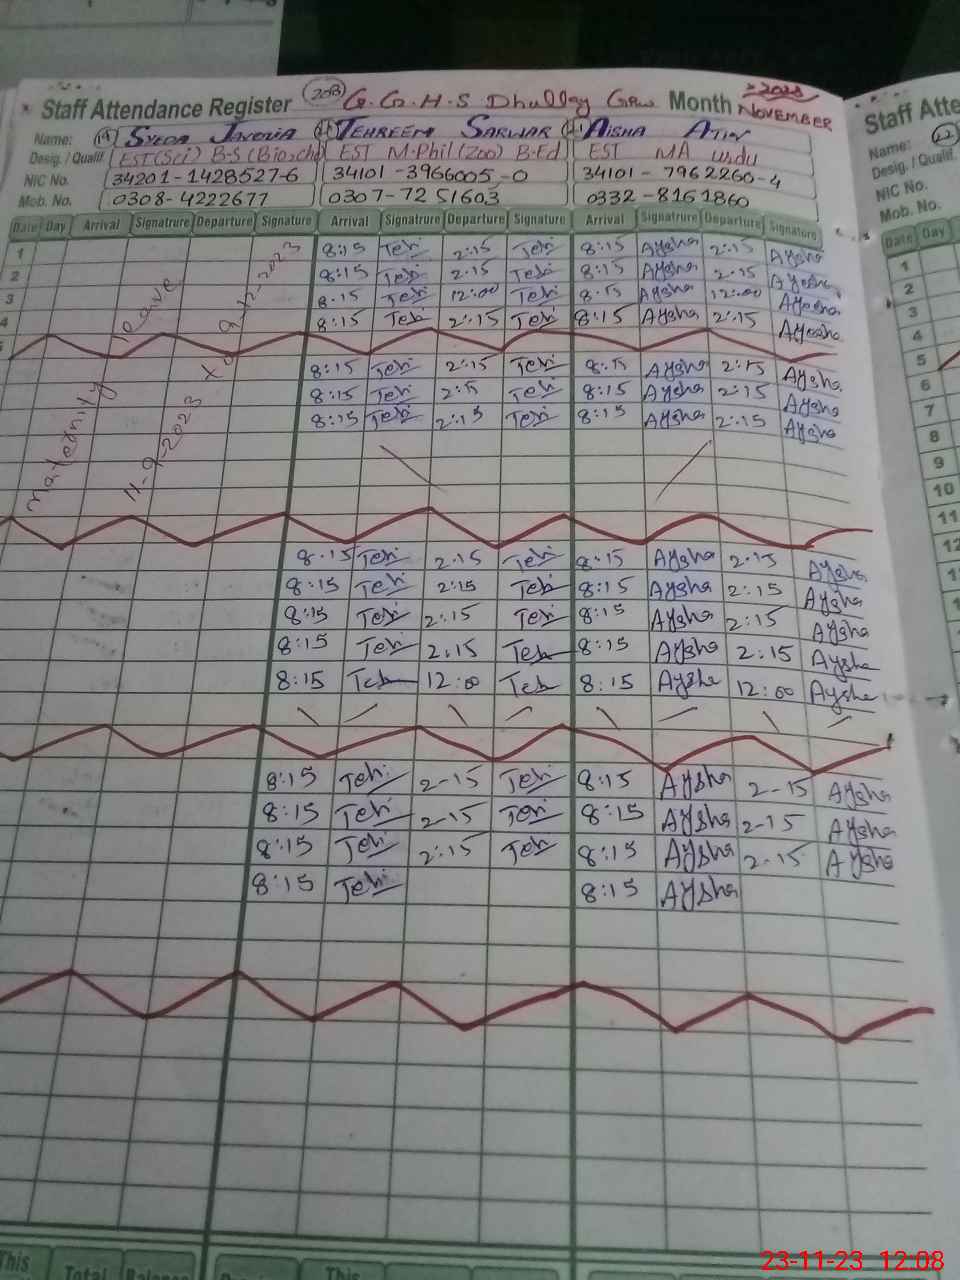 Staff Attendance Register 20B G.G.H.S Dhullay Grw Month 2023 NOVEMBER
Name: SYEDA JAVERIA TEHREEM SARWAR AISHA
Desig. / Qualif. EST(Sci) B-S (Bioche) EST M.Phil(Zoo) B-Ed EST MA Urdu
NIC No. 34201-1428527-6 34101-3966005-0 34101-7962260-4
Mob. No. 0308-4222677 0307-7251603 0332-8161860
Date Day Arrival Signatrure Departure Signature Arrival Signatrure Departure Signature Arrival Signatrure Departure Signature
1 8:15 Tehi 2:15 Tehi 8:15 Aysha 2:15 Aysha
2 8:15 Tehi 2:15 Tehi 8:15 Aysha 2:15 Ayesha
3 8:15 Tehi 12:00 Tehi 8:15 Aysha 12:00 Ayesha
4 8:15 Tehi 2:15 Tehi 8:15 Aysha 2:15 Ayesha
8:15 Tehi 2:15 Tehi 8:15 Aysha 2:15 Aysha
8:15 Tehi 2:15 Tehi 8:15 Aysha 2:15 Aysha
8:15 Tehi 2:15 Tehi 8:15 Aysha 2:15 Aysha
maternity leave
11-9-2023 to 9-12-2023
8:15 Tehi 2:15 Tehi 8:15 Aysha 2:15 Aysha
8:15 Tehi 2:15 Tehi 8:15 Aysha 2:15 Aysha
8:15 Tehi 2:15 Tehi 8:15 Aysha 2:15 Aysha
8:15 Tehi 2:15 Teh 8:15 Aysha 2:15 Aysha
8:15 Teh 12:00 Teh 8:15 Aysha 12:00 Aysha
8:15 Tehi 2-15 Tehi 8:15 Aysha 2-15 Aysha
8:15 Tehi 2-15 Tehi 8:15 Aysha 2-15 Aysha
8:15 Tehi 2:15 Teh 8:15 Aysha 2-15 Aysha
8:15 Tehi 8:15 Aysha
This Total Balance This
Staff Atte
Name:
Desig. / Qualif.
NIC No.
Mob. No.
Date Day
1
2
3
4
5
6
7
8
9
10
11
12
23-11-23 12:08